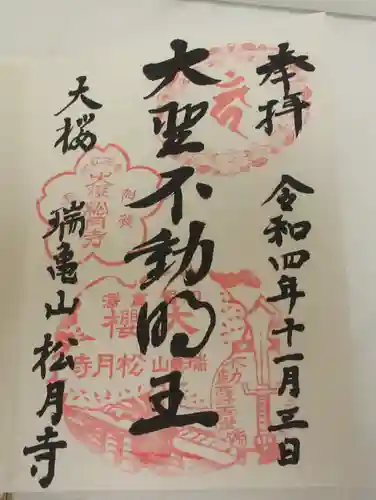 奉拝
令和四年十一月三日
大聖不動明王
大櫻
瑞亀山 松月寺
大櫻
瑞亀山 松月寺